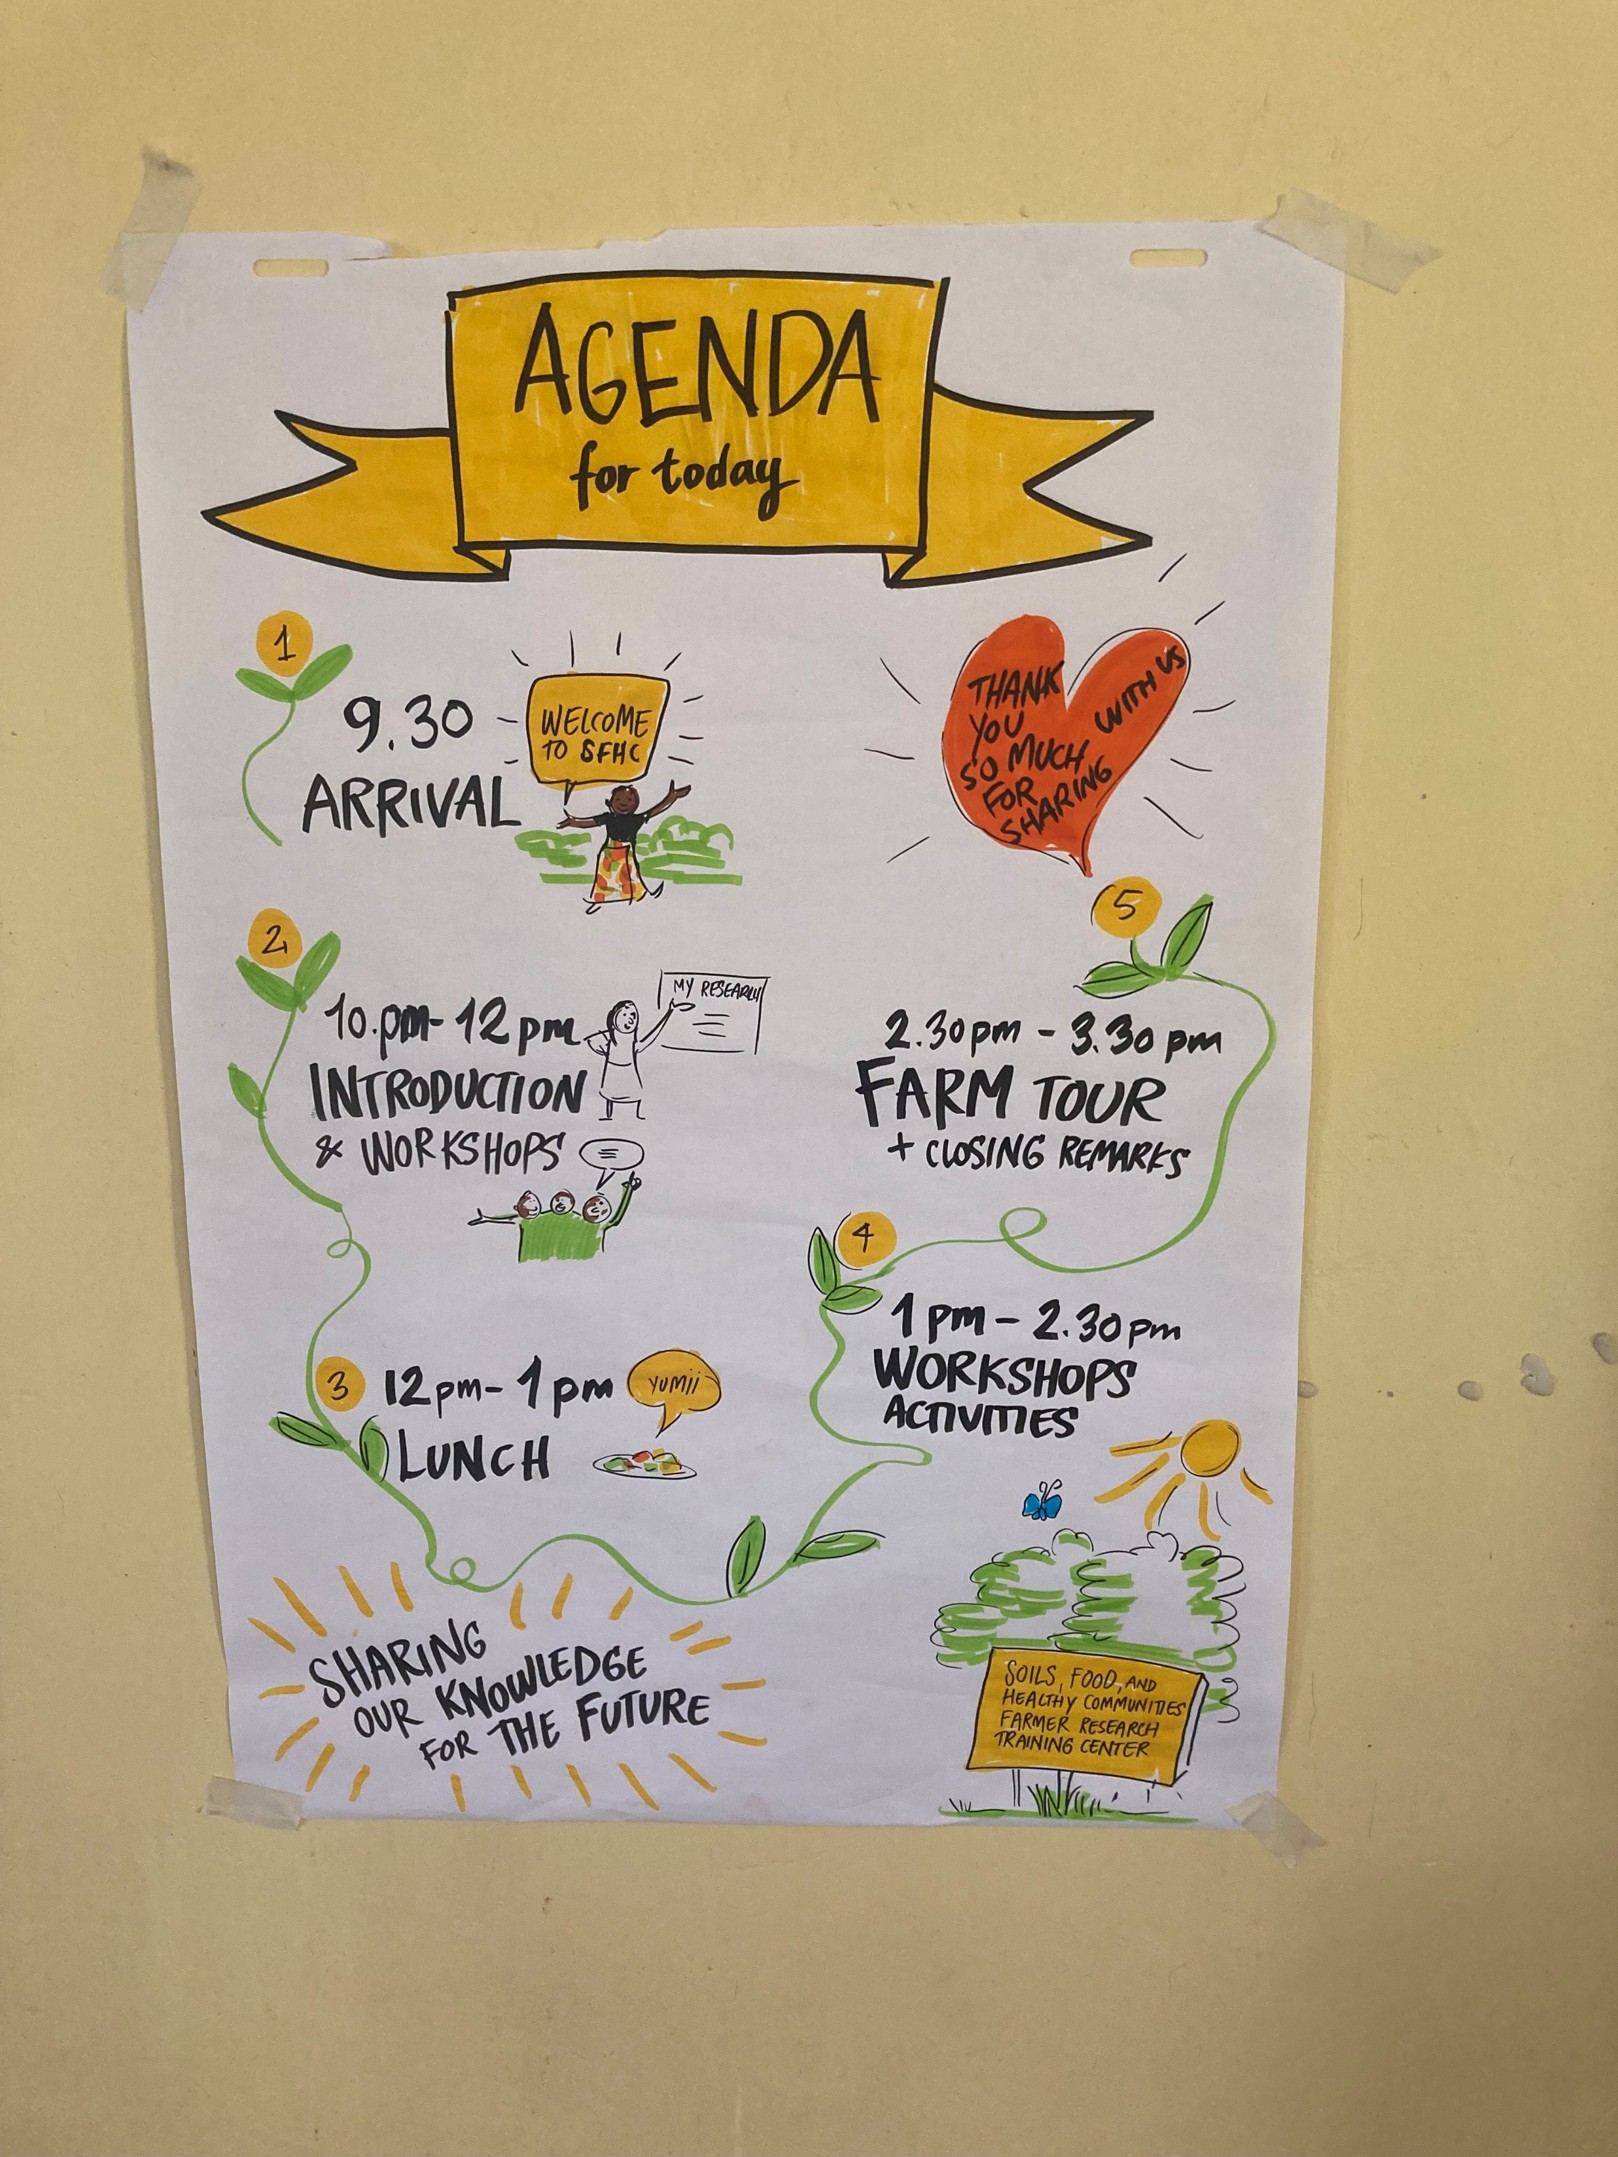 AGENDA
for today
1
9.30
ARRIVAL
WELCOME
TO SFHC
2
10.pm - 12 pm
INTRODUCTION
& WORKSHOPS
MY RESEARCH
3
12 pm - 1 pm
LUNCH
YUMii
4
1 pm - 2.30 pm
WORKSHOPS
ACTIVITIES
5
2.30 pm - 3.30 pm
FARM TOUR
+ CLOSING REMARKS
THANK
YOU
SO MUCH
FOR
SHARING
WITH US
SHARING
OUR KNOWLEDGE
FOR THE FUTURE
SOILS, FOOD, AND
HEALTHY COMMUNITIES
FARMER RESEARCH
TRAINING CENTER